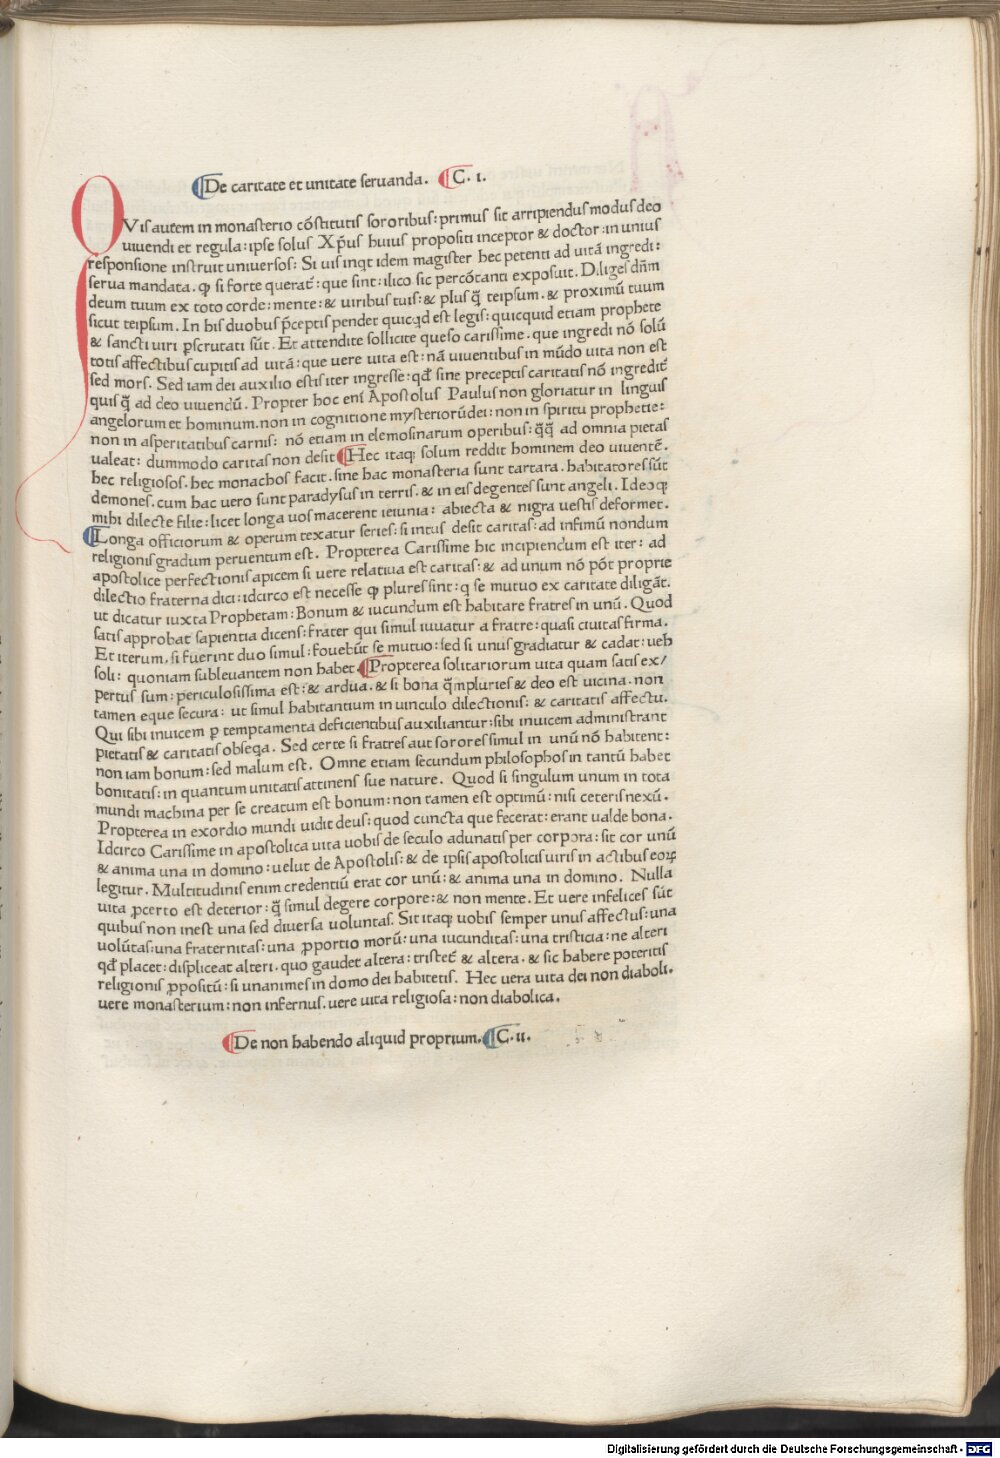 De caritate et unitate seruanda. C. i.
QVis autem in monasterio cōstitutis sororibus: primus sit arripiendus modus deo
uiuendi et regula: ipse solus Xp̄us huius propositi inceptor & doctor: in unius
responsione instruit uniuersos: Si uis inqt idem magister hec petenti ad uitā ingredi:
serua mandata. ꝙ si forte querat̄: que sint: ilico sic percōtanti exposuit. Diliges dn̄m
deum tuum ex toto corde: mente: & uiribus tuis: & plus q̄ teipsum. & proximū tuum
sicut teipsum. In his duobus p̄ceptis pendet quicqd est legis: quicquid etiam prophete
& sancti uiri pscrutati sūt. Et attendite sollicite queso carissime. que ingredi nō solū
totis affectibus cupitis ad uitā: que uere uita est: nā uiuentibus in mūdo uita non est
sed mors. Sed iam dei auxilio estis iter ingresse: qd̄ sine preceptis caritatis nō ingredit̄
quis q̄ ad deo uiuendū. Propter hoc eni Apostolus Paulus non gloriatur in linguis
angelorum et hominum. non in cognitione mysteriorū dei: non in spiritu prophetie:
non in asperitatibus carnis: nō etiam in elemosinarum operibus: q̄q̄ ad omnia pietas
ualeat: dummodo caritas non desit Hec itaq; solum reddit hominem deo uiuentē.
hec religiosos. hec monachos facit. sine hac monasteria sunt tartara. habitatores sūt
demones. cum hac uero sunt paradysus in terris. & in eis degentes sunt angeli. Ideo ꝙ
mihi dilecte filie: licet longa uos macerent ieiunia: abiecta & nigra uestis deformet.
Longa officiorum & operum texatur series: si intus desit caritas: ad infimū nondum
religionis gradum peruentum est. Propterea Carissime hic incipiendum est iter: ad
apostolice perfectionis apicem si uere relatiua est caritas: & ad unum nō pōt proprie
dilectio fraterna dici: idcirco est necesse ꝙ plures sint: q se mutuo ex caritate diligāt.
ut dicatur iuxta Prophetam: Bonum & iucundum est habitare fratres in unū. Quod
satis approbat sapientia dicens: frater qui simul iuuatur a fratre: quasi ciuitas firma.
Et iterum. si fuerint duo simul: fouebūt se mutuo: sed si unus gradiatur & cadat: ueh
soli: quoniam subleuantem non habet. Propterea solitariorum uita quam satis ex/
pertus sum: periculosissima est: & ardua. & si bona q̄mpluries & deo est uicina. non
tamen eque secura: ut simul habitantium in uinculo dilectionis: & caritatis affectu.
Qui sibi inuicem p temptamenta deficientibus auxiliantur: sibi inuicem administrant
pietatis & caritatis obseqa. Sed certe si fratres aut sorores simul in unū nō habitent:
non iam bonum: sed malum est. Omne etiam secundum philosophos in tantū habet
bonitatis: in quantum unitatis attinens sue nature. Quod si singulum unum in tota
mundi machina per se creatum est bonum: non tamen est optimū: nisi ceteris nexū.
Propterea in exordio mundi uidit deus: quod cuncta que fecerat: erant ualde bona.
Idcirco Carissime in apostolica uita uobis de seculo adunatis per corpora: sit cor unū
& anima una in domino: uelut de Apostolis: & de ipsis apostolicis uiris in actibus eoꝝ
legitur. Multitudinis enim credentiū erat cor unū: & anima una in domino. Nulla
uita ꝓcerto est deterior: q̄ simul degere corpore: & non mente. Et uere infelices sūt
quibus non inest una sed diuersa uoluntas. Sit itaq; uobis semper unus affectus: una
uolūtas: una fraternitas: una ꝓportio morū: una iucunditas: una tristicia: ne alteri
qd̄ placet: displiceat alteri. quo gaudet altera: tristet̄ & altera. & sic habere poteritis
religionis ꝓpositū: si unanimes in domo dei habitetis. Hec uera uita dei non diaboli.
uere monasterium: non infernus. uere uita religiosa: non diabolica.
De non habendo aliquid proprium. C. ii.
Digitalisierung gefördert durch die Deutsche Forschungsgemeinschaft - DFG